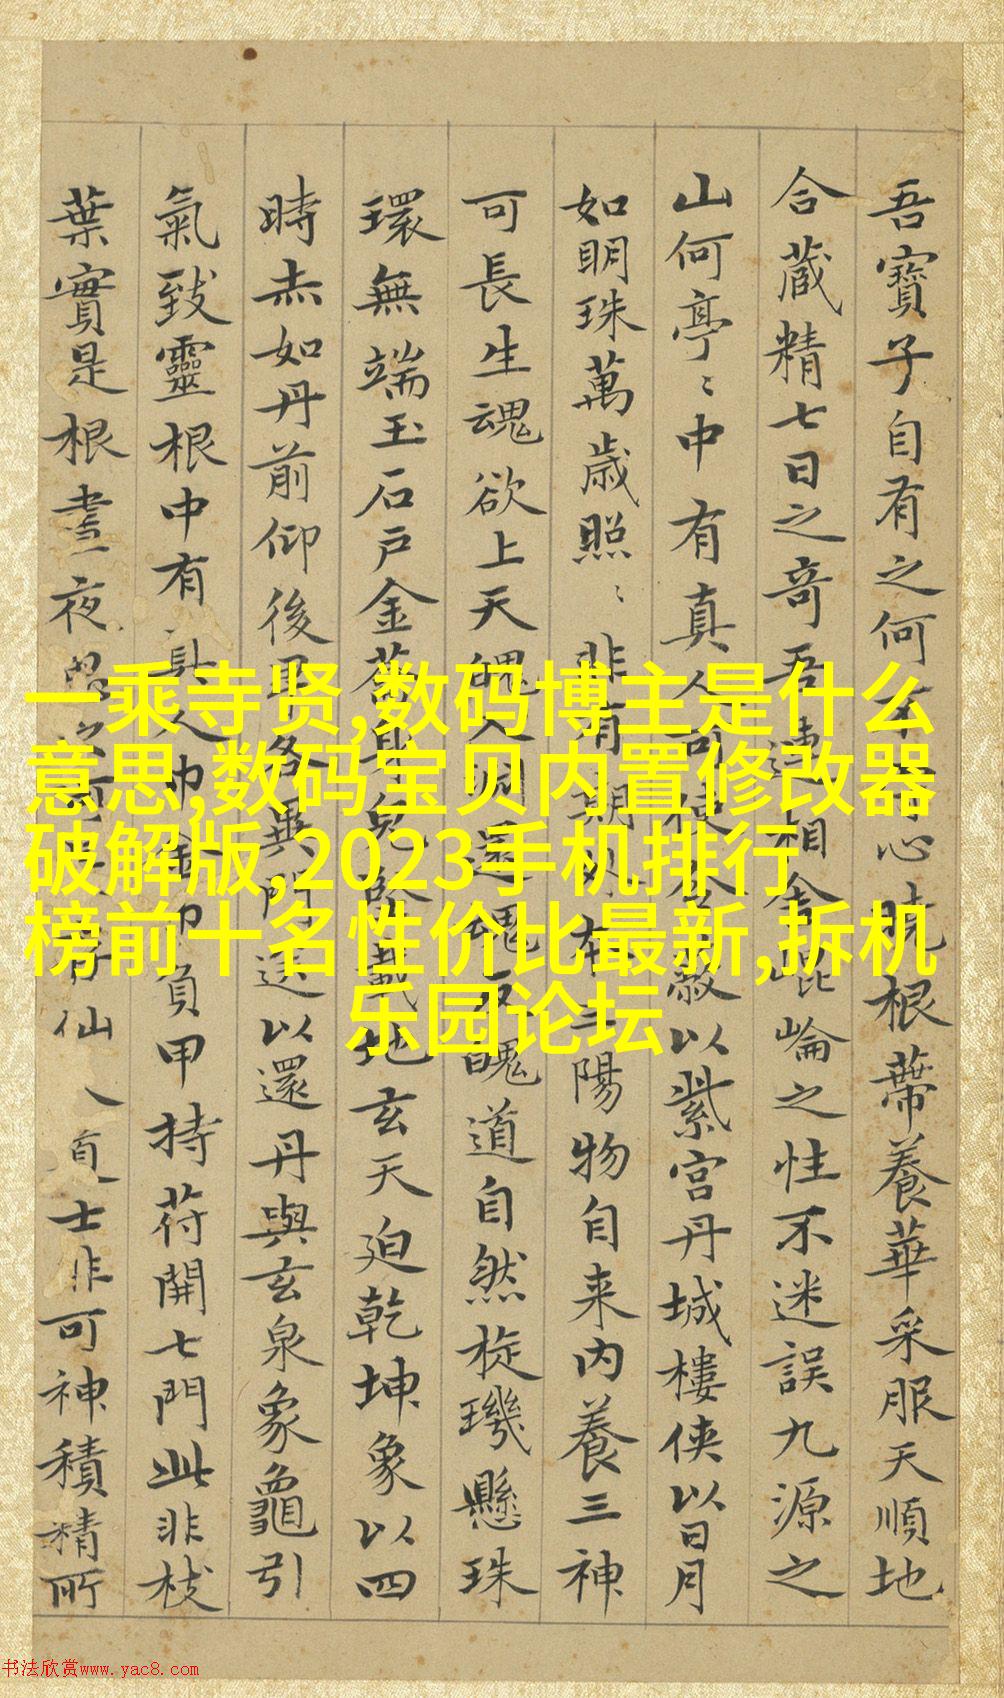 吾寶子自有之何心曉根蔕養華采服天順地
合蔵精七日之奇吾連相舍崐崘之性不迷誤九源之
山何亭〻中有真人可使令蔽以紫宮丹城樓俠以日月
如明珠萬歳照〻非有期外本三陽物自来内養三神
可長生魂欲上天魄入淵還魂反魄道自然旋璣懸珠
環無端玉石戶金蕃身堅載地玄天迫乾坤象以四
時赤如丹前仰後卑各異門送以還丹與玄泉象龜引
氣致靈根中有真人巾金巾負甲持苻開七門此非枝
葉實是根晝夜思之仙人士非可神積精所
一乘寺贤,数码博主是什么
意思,数码宝贝内置修改器
破解版,2023手机排行
榜前十名性价比最新,拆机
乐园论坛
书法欣赏www.yac8.com